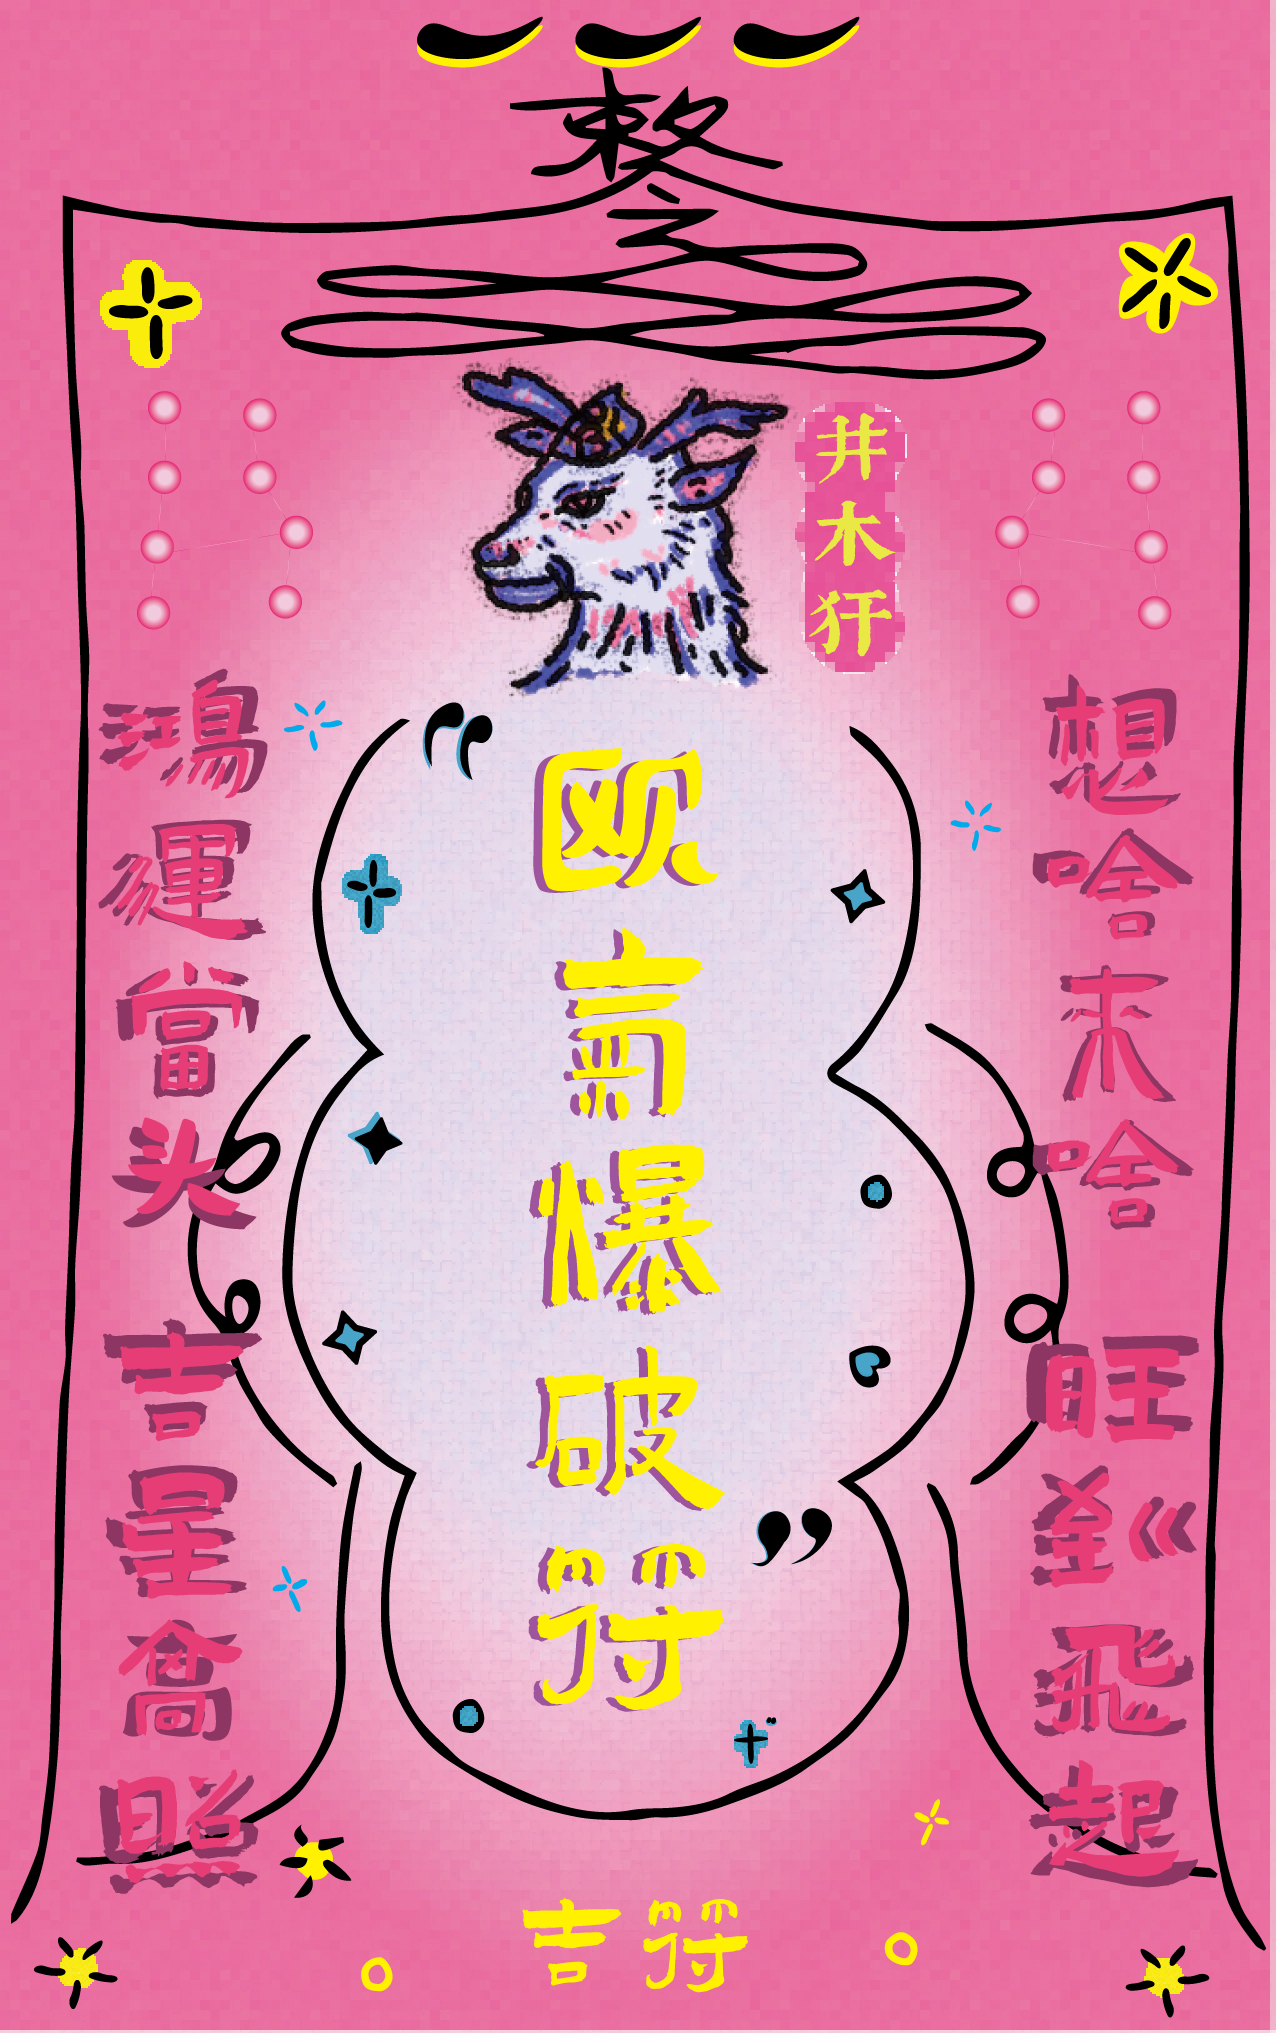 敕令
井木犴
想啥来啥
旺到飛起
欧氣爆破符
鴻運當头
吉星高照
吉符